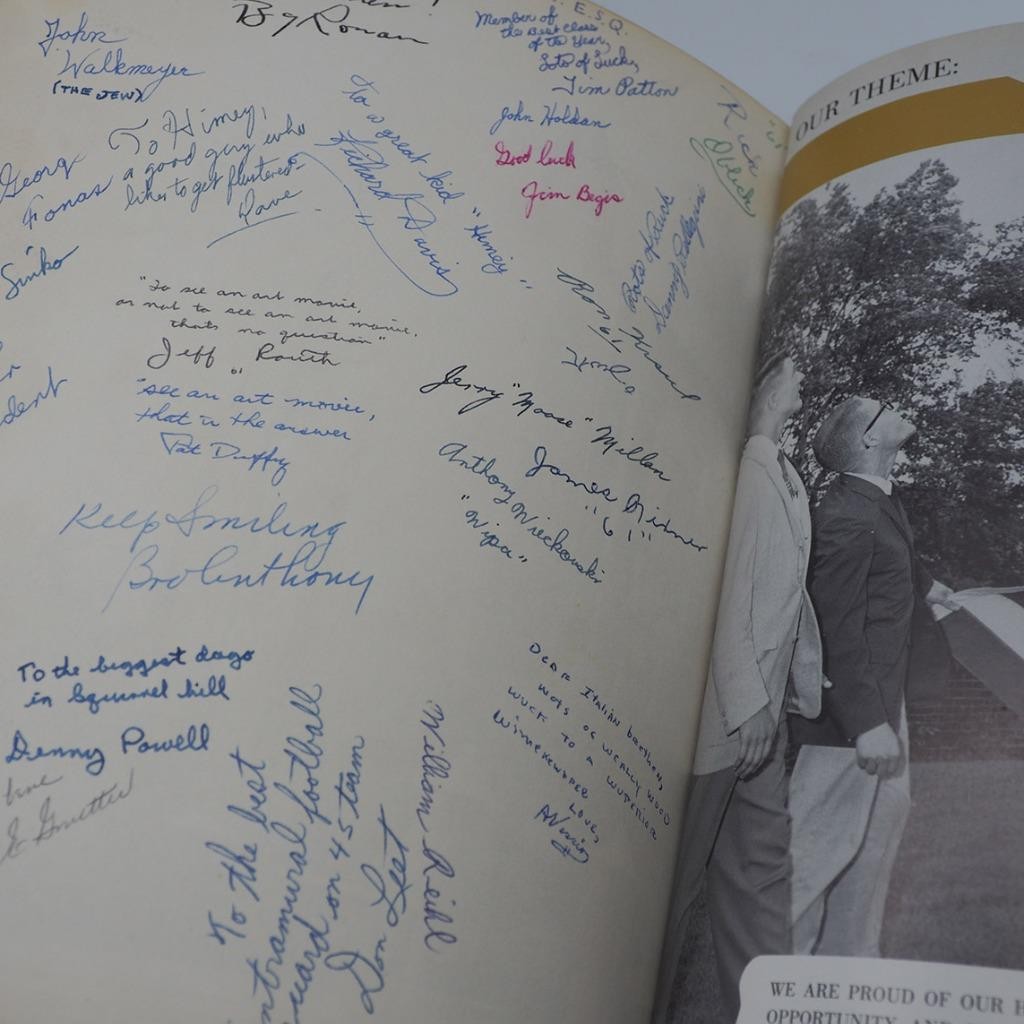 By Ronan
John
Walkmeyer
(THE JEW)
E.S.Q.
Member of
the Best Class
of the Year,
Lots of Luck,
Jim Patton
John Holdan
Good luck
Jim Begis
Rick
To Himey,
a good guy who
likes to get flustered
Dave
Georg
Fonas
Sinko
To a great kid "Himey"
Richard Davis
Lots of Luck
Danny
"To see an art movie,
or not to see an art movie,
thats no question"
Jeff Routh
"see an art movie,
that is the answer
Pat Duffy
dent
Jerry "Moose" Millan
James
"61"
Anthony Wieckowski
"Wipa"
Keep Smiling
Bro Anthony
To the biggest dago
in Squirrel hill
Denny Powell
To the best
intramural football
guard on 45 team
Don Lest
William Reihl
DEAR ITALIAN brethen,
WOTS OF WEALLY WOOD
WUCK TO A WUPERIOR
Wimekewaper LOVE,
OUR THEME:
WE ARE PROUD OF OUR
OPPORTUNITY